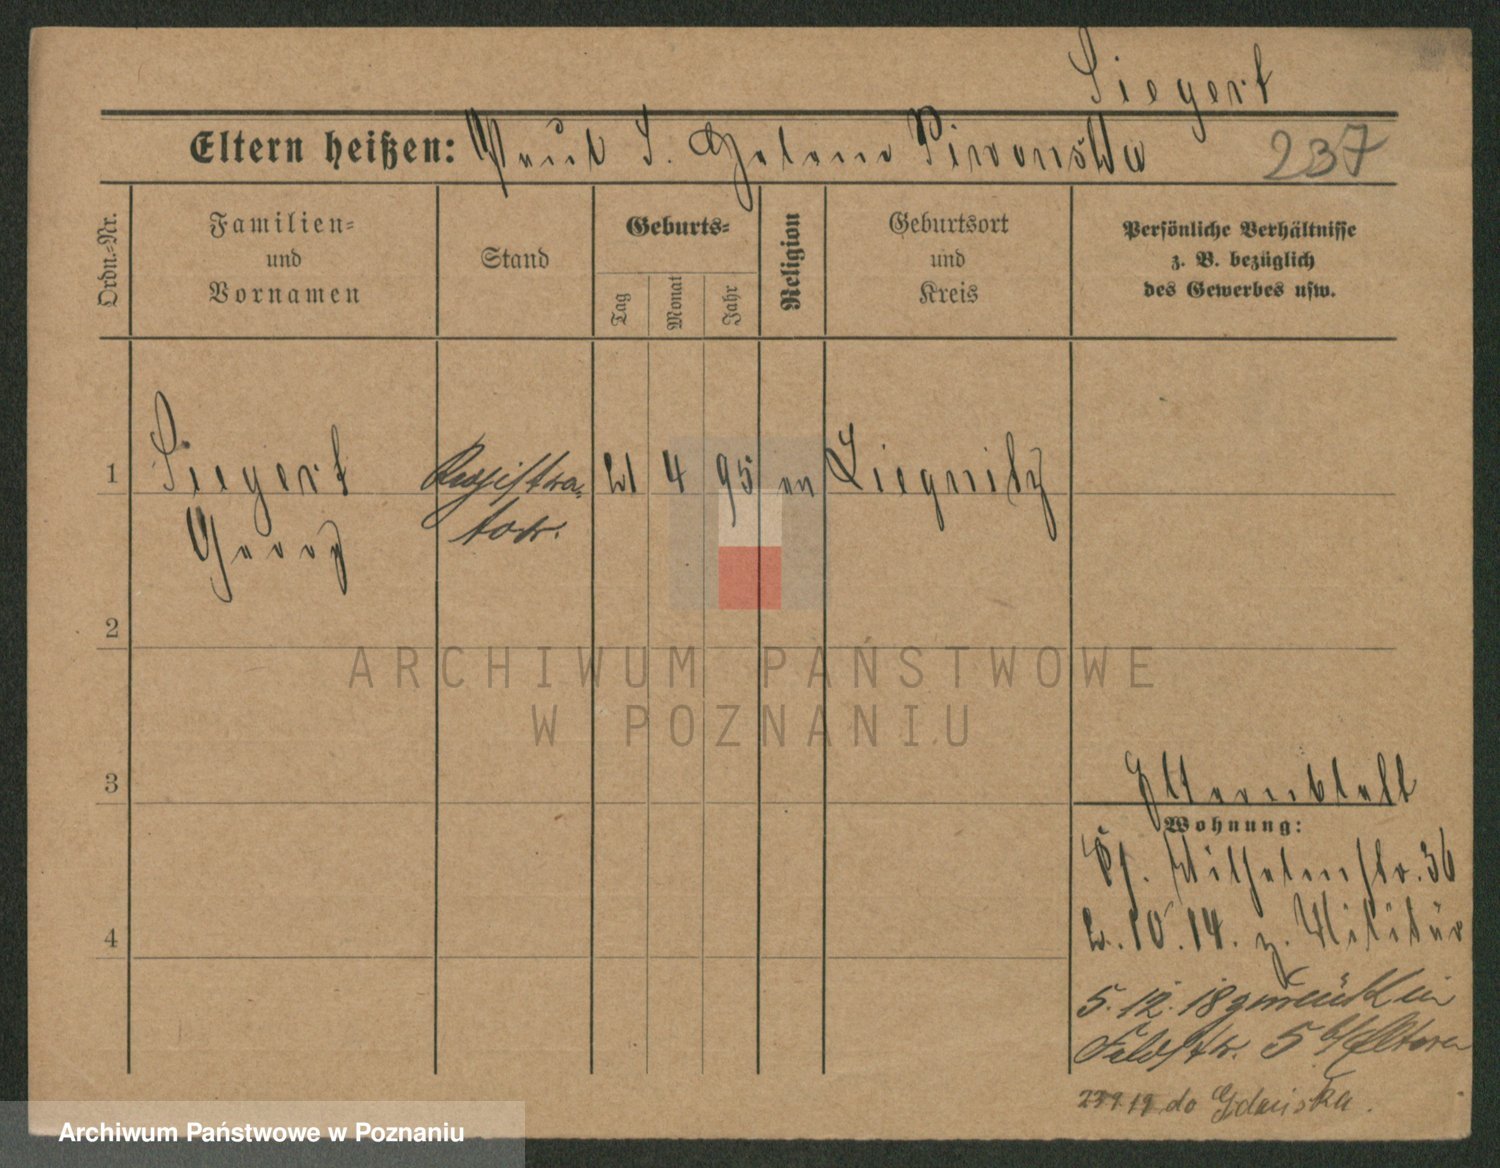 Siegert
Eltern heißen: Paul S. Helene Piwonska 237
Ordn.-Nr.
Familien-
und
Vornamen
Stand
Geburts-
Tag
Monat
Jahr
Religion
Geburtsort
und
Kreis
Persönliche Verhältnisse
z. B. bezüglich
des Gewerbes usw.
1 Siegert Registra- 21 4 95 ev Liegnitz
Georg tor.
2
ARCHIWUM PAŃSTWOWE
W POZNANIU
3
Elternblatt
Wohnung:
Wilhelmstr. 36
4
2.10.14. z. Militär
5.12.18 zurück in
Feldstr. 5 b/Eltern
do Gdańska.
Archiwum Państwowe w Poznaniu